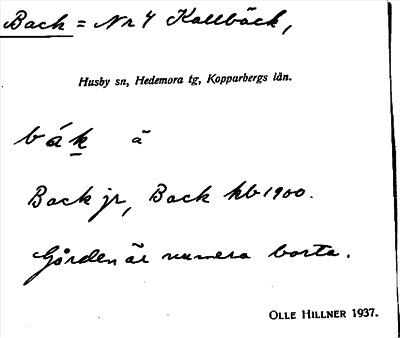 Back = Nr 4 Kallbäck,
Husby sn, Hedemora tg, Kopparbergs län.
båk ä
Back jr, Back kb 1900.
Gården är numera borta.
OLLE HILLNER 1937.